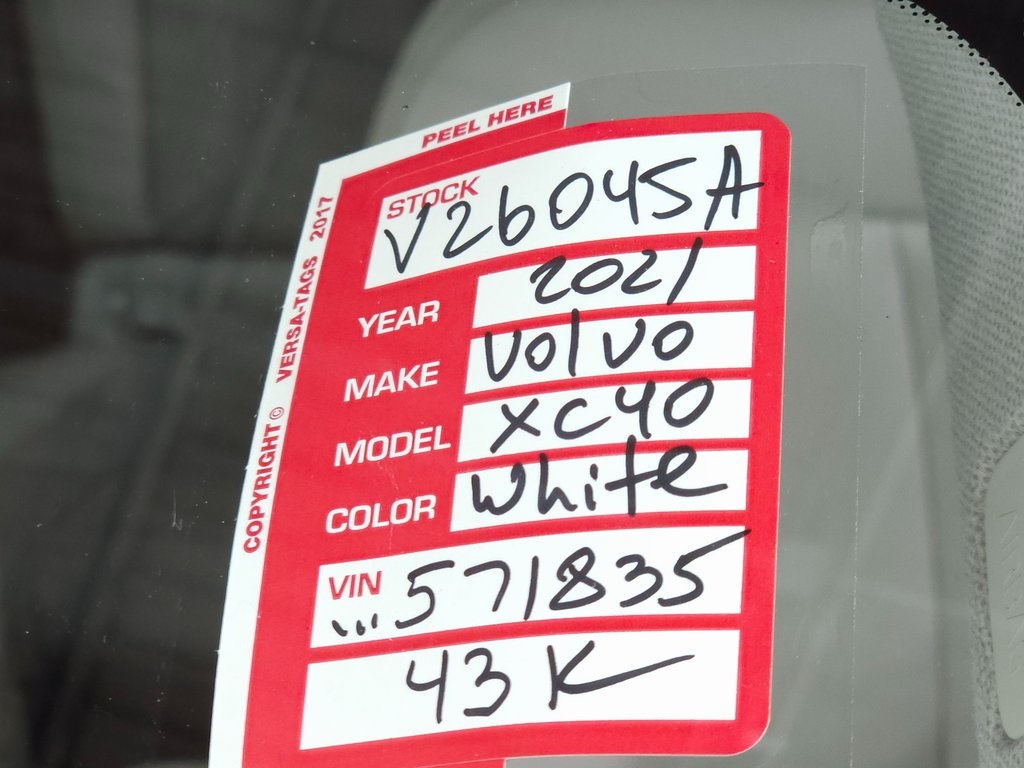 PEEL HERE
COPYRIGHT © VERSA-TAGS 2017
STOCK
V26045A
YEAR 2021
MAKE Volvo
MODEL XC40
COLOR White
VIN
...571835
43K